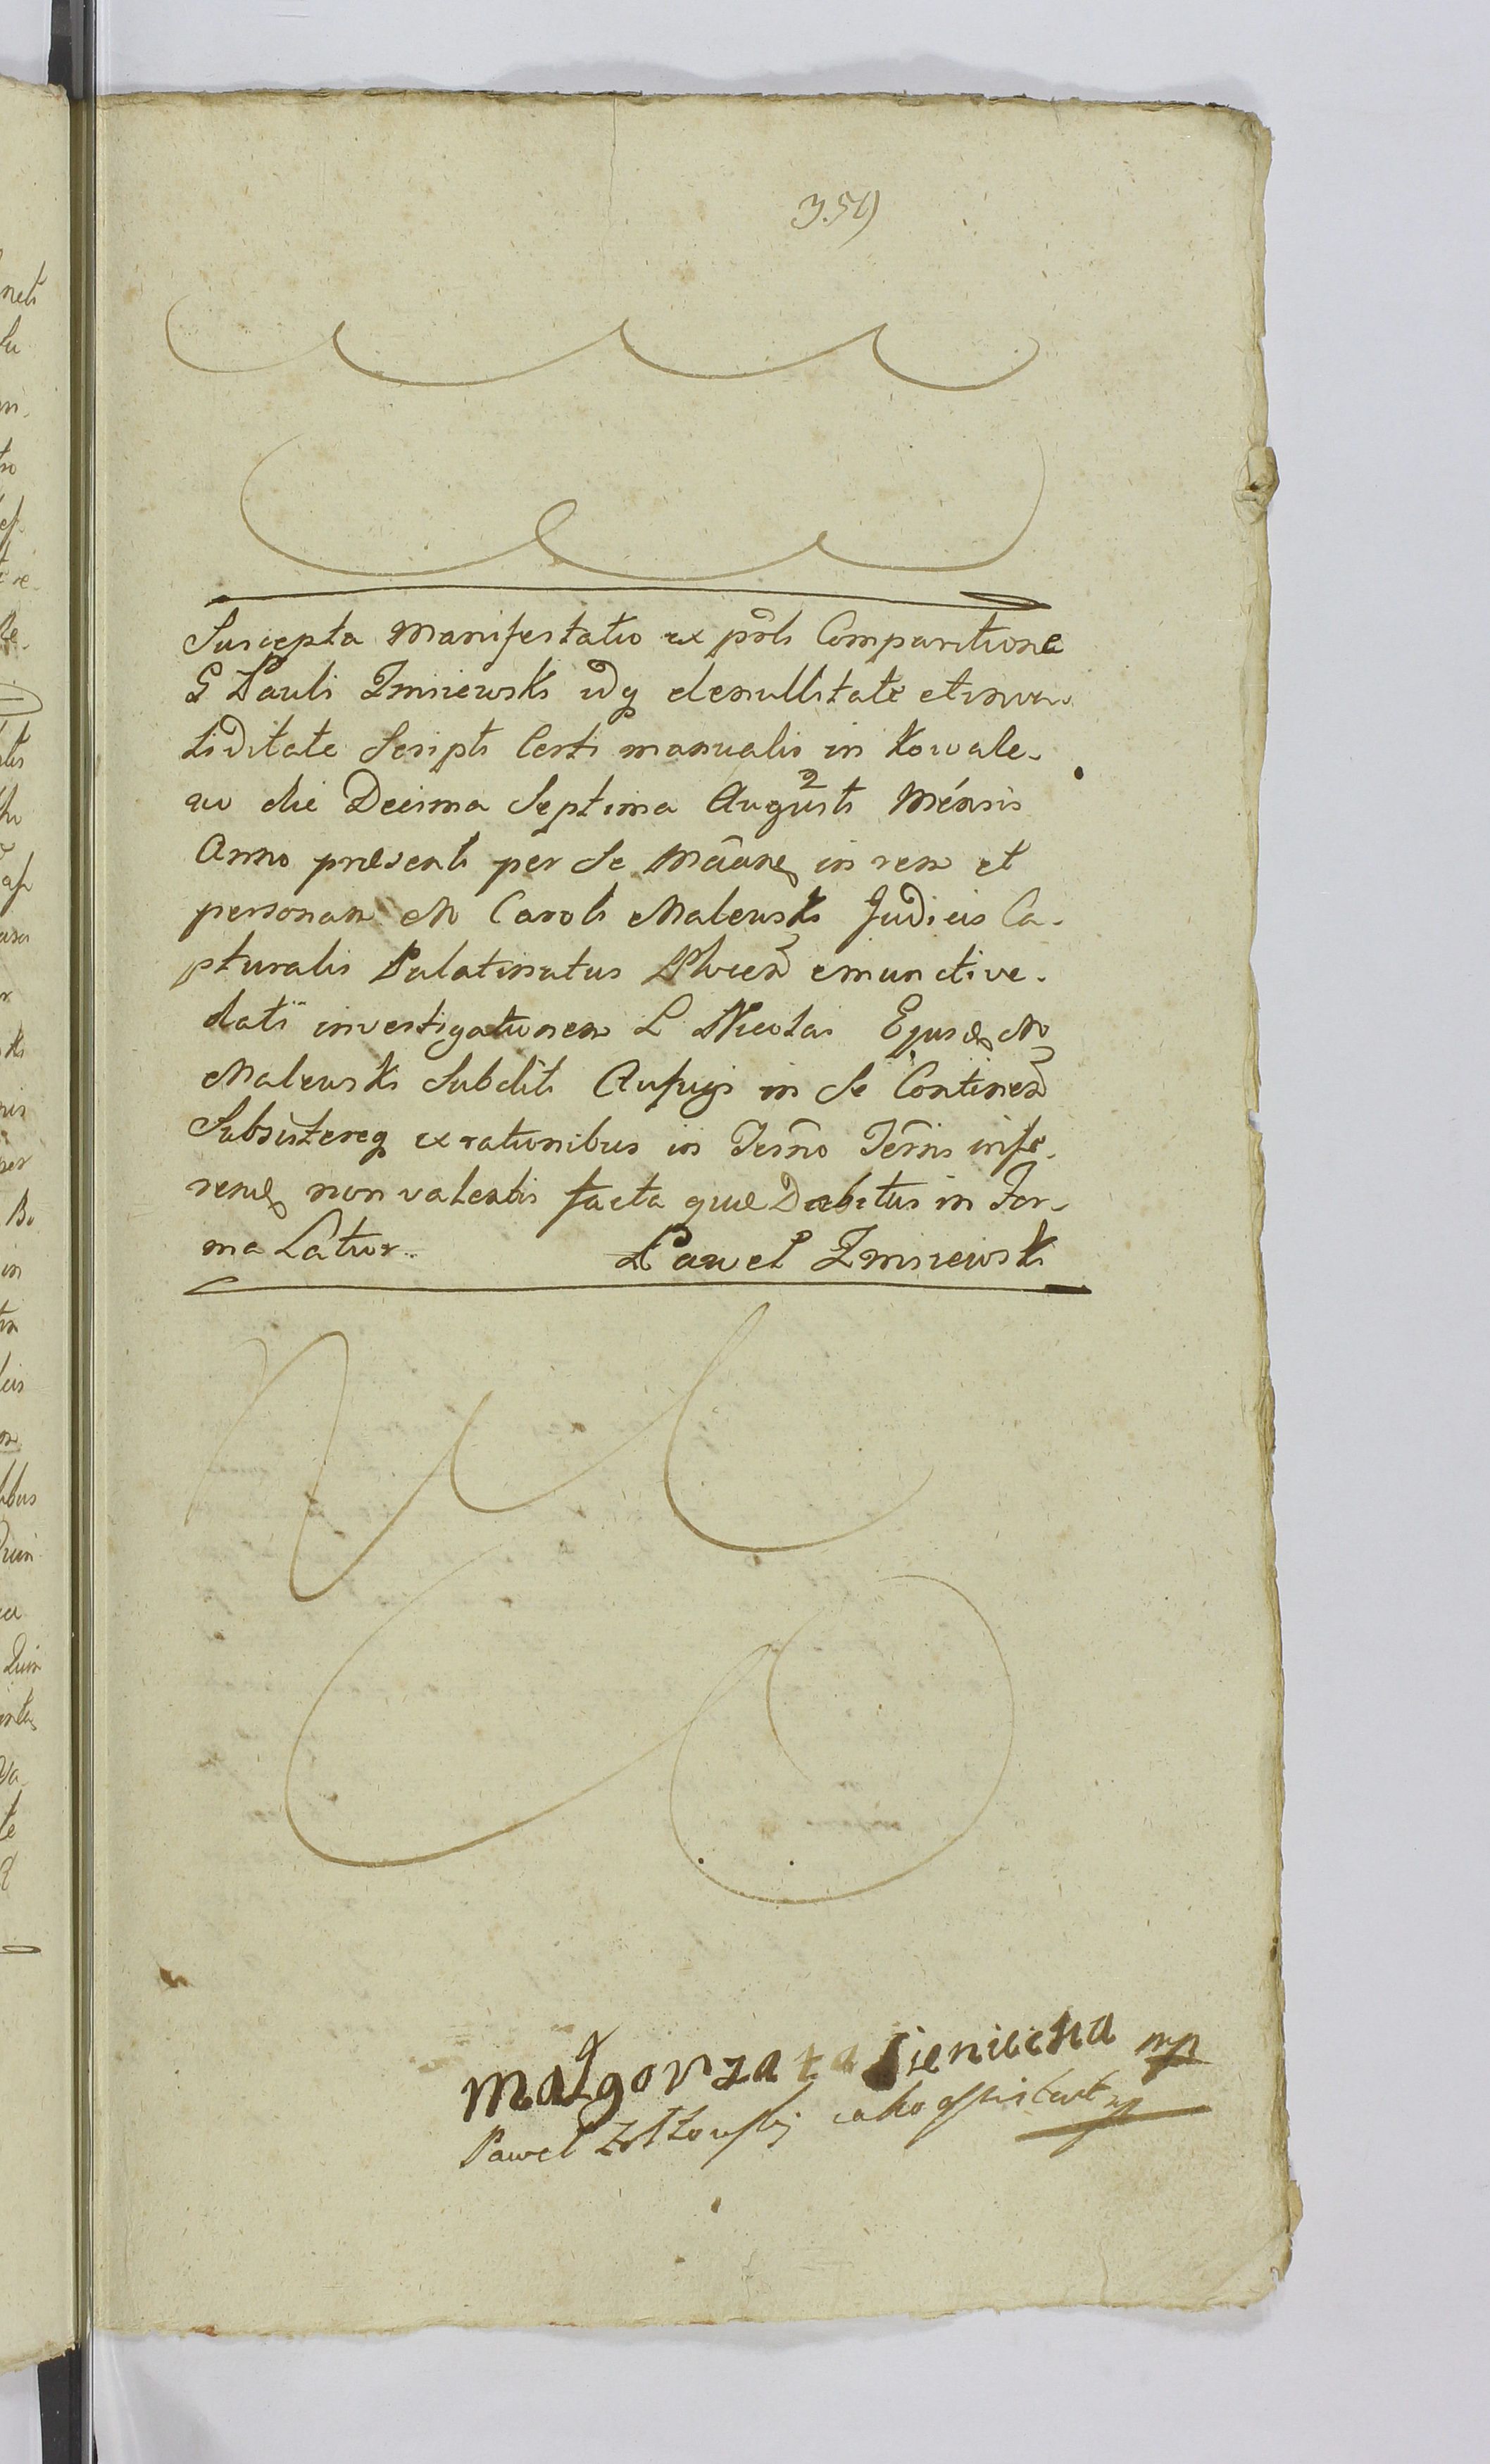 359
Suscepta Manifestatio ex pñli Comparitione
G Pauli Zmiiewski idq de nullitate et inva-
liditate Scripti Certi manualis in Kowale-
wo die Decima Septima Augusti Mensis
Anno præsenti per se in rem et
personam M Caroli Malewski Judicis Ca-
pturalis Palatinatus emunctive
dati investigationem L Nicolai Ejusd M
Malewski Subditi Aufugi in se Continen
Subsistereq ex rationibus in Termo Termis infe-
rend non valentis facta quæ Debitus in For-
ma Latior. Pawel Zmiiewski
Małgorzata Sieniicka mp
Pawel Zołtowski iako assistent mp